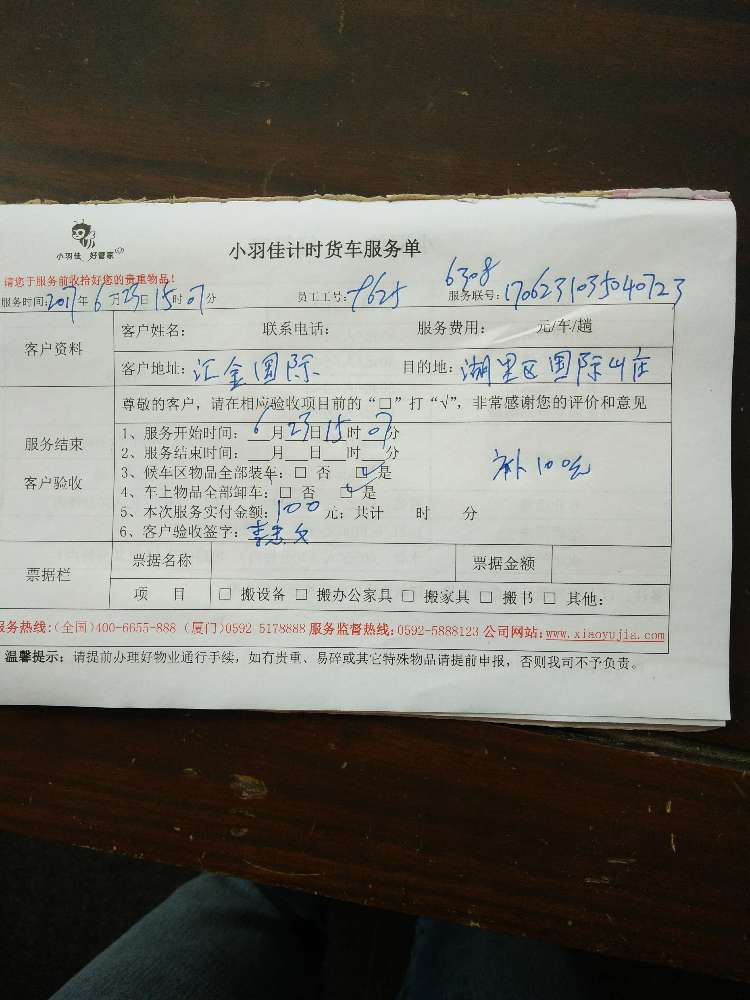 小羽佳 好管家
小羽佳计时货车服务单
请您于服务前收拾好您的贵重物品！
6308
服务时间:2017年6月23日15时07分 员工工号:9625 服务联号:1706231035040723
客户资料
客户姓名: 联系电话: 服务费用: 元/车/趟
客户地址:汇金国际 目的地:湖里区国际山庄
服务结束
客户验收
尊敬的客户，请在相应验收项目前的“□”打“√”，非常感谢您的评价和意见
1、服务开始时间：6月23日15时07分
2、服务结束时间：___月___日___时___分
3、候车区物品全部装车：□ 否 □ 是
补100元
4、车上物品全部卸车：□ 否 □ 是
5、本次服务实付金额：100元；共计 时 分
6、客户验收签字：
票据栏
票据名称 票据金额
项 目 □ 搬设备 □ 搬办公家具 □ 搬家具 □ 搬书 □ 其他：
服务热线:(全国)400-6655-888 (厦门)0592 5178888 服务监督热线:0592-5888123 公司网站:www.xiaoyujia.com
温馨提示：请提前办理好物业通行手续，如有贵重、易碎或其它特殊物品请提前申报，否则我司不予负责。